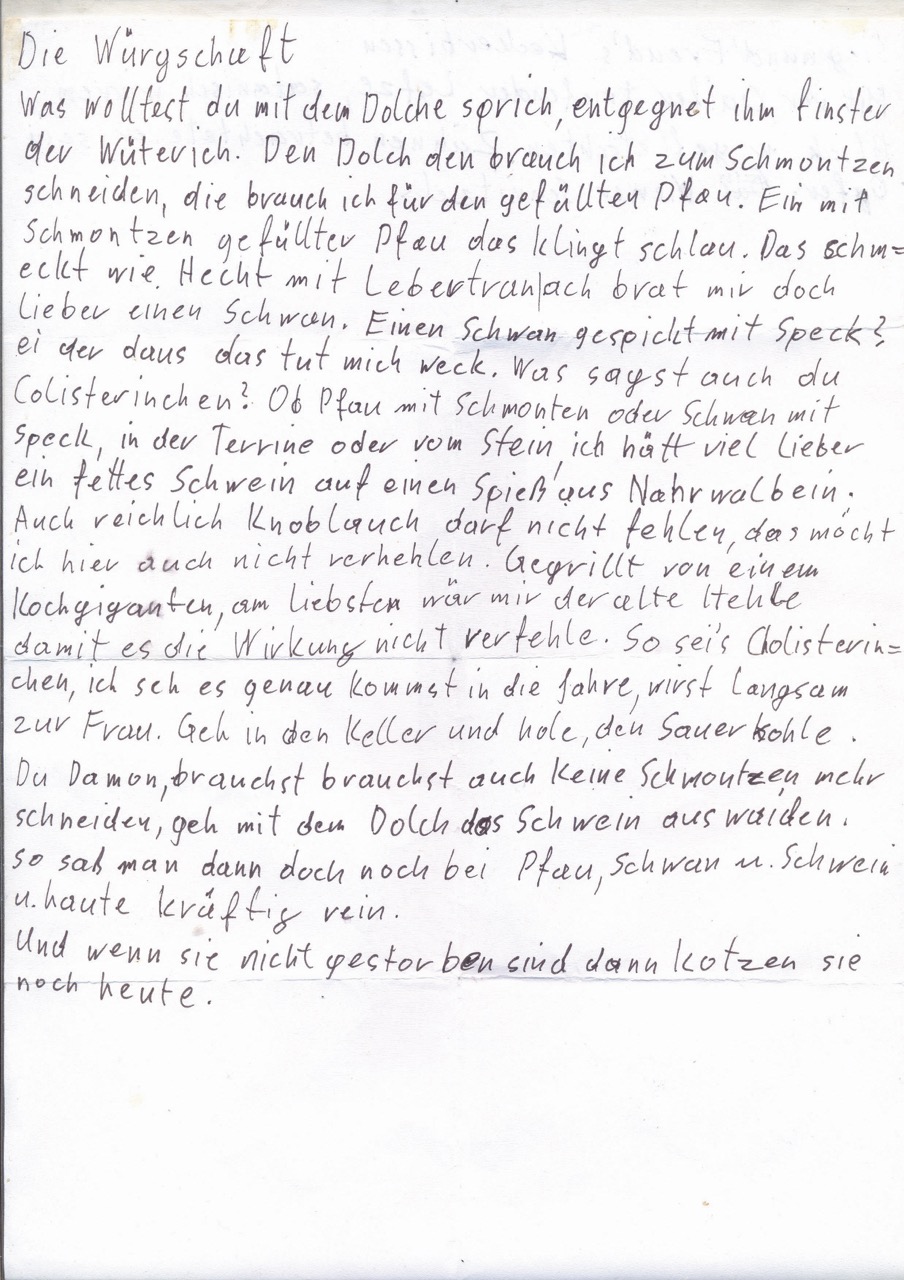 Die Würgschaft
Was wolltest du mit dem Dolche sprich, entgegnet ihm finster
der Wüterich. Den Dolch den brauch ich zum Schmontzen
schneiden, die brauch ich für den gefüllten Pfau. Ein mit
Schmontzen gefüllter Pfau das klingt schlau. Das schm=
eckt wie Hecht mit Lebertran, ach brat mir doch
lieber einen Schwan. Einen Schwan gespickt mit Speck?
ei der daus das tut mich weck. Was sagst auch du
Colisterinchen? Ob Pfau mit Schmonten oder Schwan mit
Speck, in der Terrine oder vom Stein, ich hätt viel lieber
ein fettes Schwein auf einen Spieß aus Nahrwalbein.
Auch reichlich Knoblauch darf nicht fehlen, das möcht
ich hier auch nicht verhehlen. Gegrillt von einem
Kochgiganten, am liebsten wär mir der alte Hehle
damit es die Wirkung nicht verfehle. So sei's Cholisterin=
chen, ich seh es genau kommst in die Jahre, wirst langsam
zur Frau. Geh in den Keller und hole, den Sauerkohle.
Du Damon, brauchst brauchst auch keine Schmontzen mehr
schneiden, geh mit dem Dolch das Schwein auswaiden.
so saß man dann doch noch bei Pfau, Schwan u. Schwein
u. haute kräftig rein.
Und wenn sie nicht gestorben sind dann kotzen sie
noch heute.